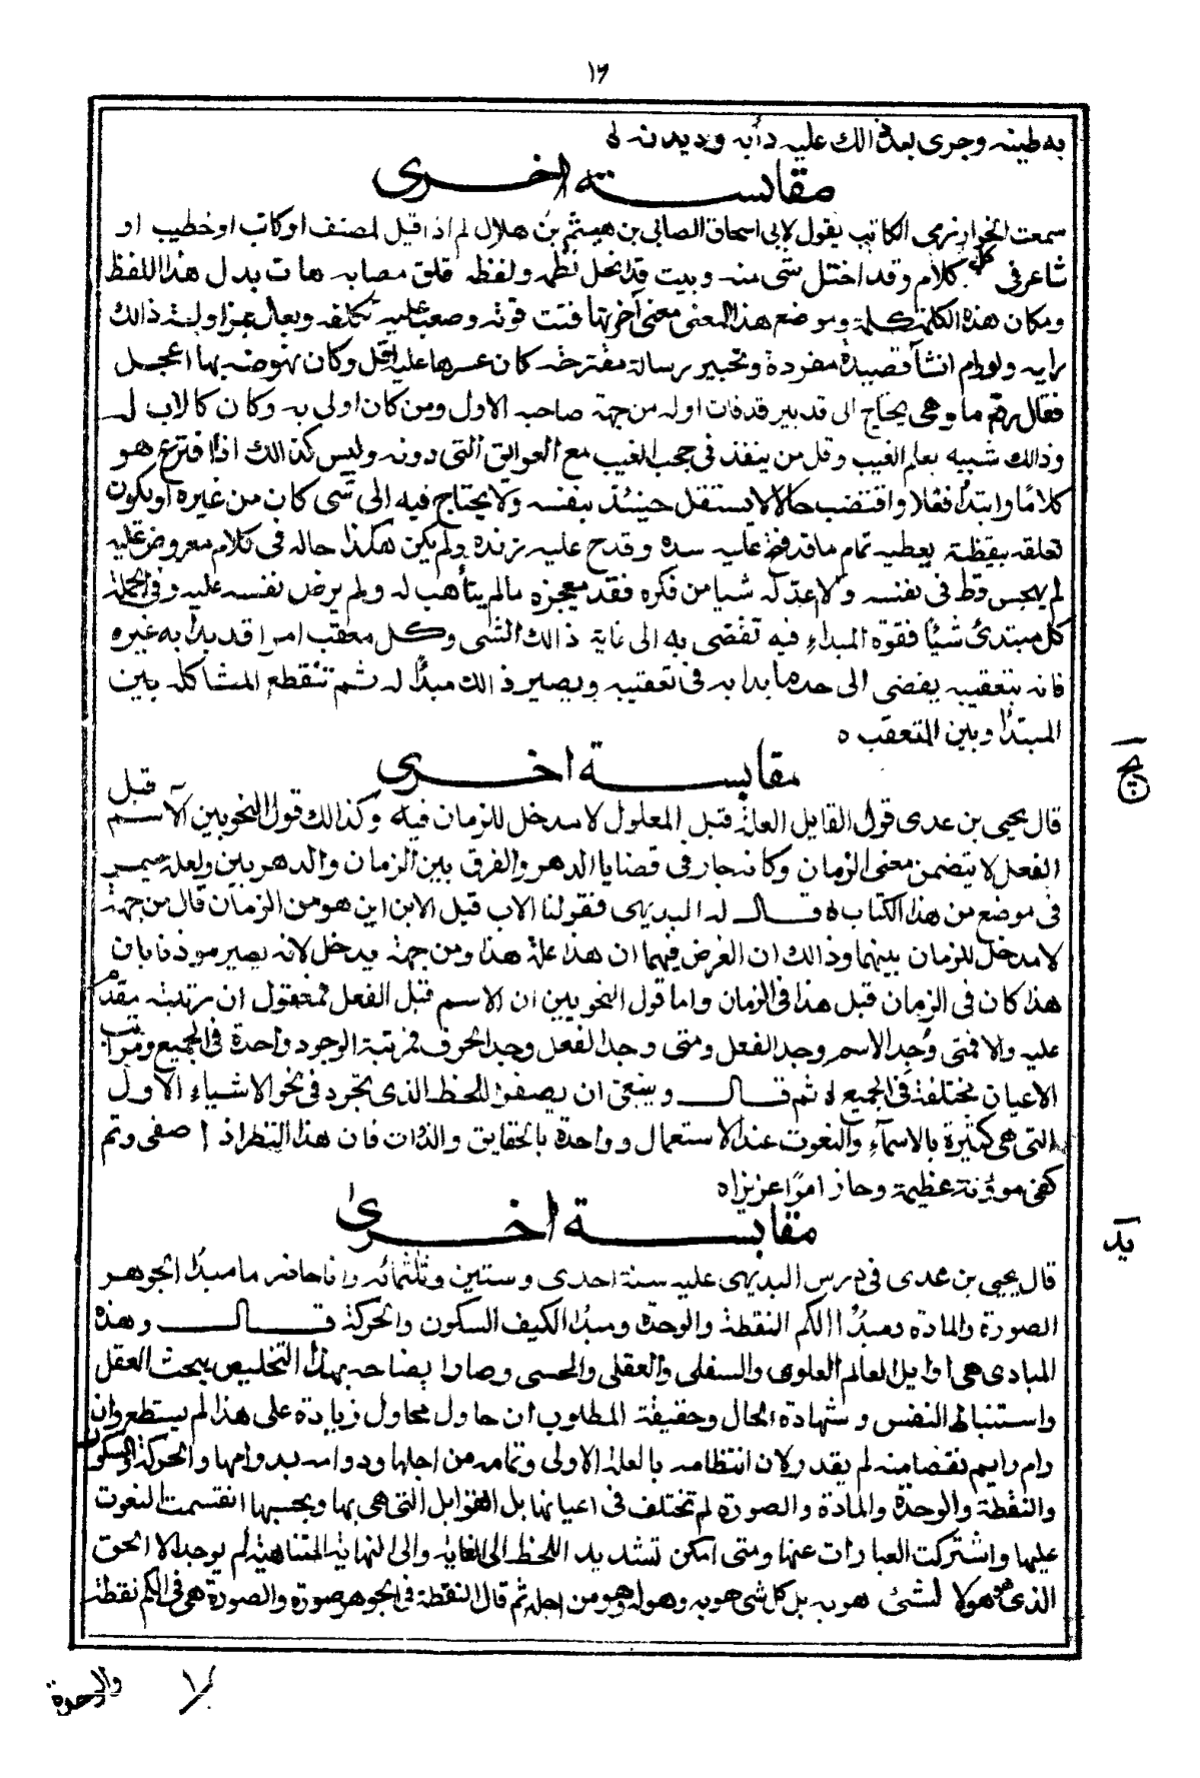 ١٦
به طينه وجرى بعد ذالك عليه دأبه وديدنه
مقابسة اخرى
سمعت الخوارزمى الكاتب يقول لابى اسحاق الصابى بن هيثم بن هلال لم اذا قيل لمصنف او كاتب او خطيب او
شاعر فى كلام وقد اختل شى منه وبيت قد انحل نظمه ولفظه قلق مصابه هات بدل هذا اللفظ
ومكان هذه الكلمة كلمة وموضع هذا المعنى معنى آخر تهافتت قوته وصعب عليه تكلفه وبعال بمزاولة ذالك
رايه ولو رام انشأ قصيدة مفردة وتحبير رسالة مقترحه كان عسرها عليه اقل وكان نهوضه بها اعجل
فقال رقم ما وهى يحتاج الى تدبير قد فات اوله من جهة صاحبه الاول ومن كان اولى به وكان كالاب له
وذالك شبيه بعلم الغيب وقل من ينفذ فى حجب الغيب مع العوايق التى دونه وليس كذالك اذا افترع هو
كلاما وابتدأ فعلا واقتضب حالا لا يستقل حينئذ بنفسه ولا يحتاج فيه الى شى كان من غيره او يكون
تعلقه بيقظة يعطيه تمام ما قد فتح عليه سده وقدح عليه زنده ولم يكن هكذا حاله فى كلام معروض عليه
لم يهجس قط فى نفسه ولا اعد له شيا من فكره فقد معجزه مالم يتأهب له ولم يرض نفسه عليه وفى الجملة
كل مبتدئ شيئا فقوة المبداء فيه تفضى به الى غاية ذالك الشى وكل معقب امرا قد بدأ به غيره
فانه بتعقيبه يفضى الى حد ما بدا به فى تعقيبه ويصير ذالك مبدأ له ثم تنقطع المشاكله بين
المبتدأ وبين المتعقب ٥
مقابسة اخرى
يج
قال يحيى بن عدى قول القايل العلة قبل المعلول لا مدخل للزمان فيه وكذالك قول النحويين الاسم قبل
الفعل لا يتضمن معنى الزمان وكانه جار فى قضايا الدهر والفرق بين الزمان والدهر بين ولعله سيمر
فى موضع من هذا الكتاب ٥ قال له البديهى فقولنا الاب قبل الابن اين هو من الزمان قال من جهة
لا مدخل للزمان بينهما وذالك ان الغرض فيهما ان هذا علة هذا ومن جهة يدخل لانه يصير موذنا بان
هذا كان فى الزمان قبل هذا فى الزمان واما قول النحويين ان الاسم قبل الفعل فمعقول ان مرتبته مقدم
عليه والا فمتى وجد الاسم وجد الفعل ومتى وجد الفعل وجد الحرف فمرتبة الوجود واحدة فى الجميع ومراتب
الاعيان مختلفة فى الجميع ٥ ثم قال وينبغى ان يصفو اللحظ الذى تجرد فى نحو الاشياء الاول
التى هى كثيرة بالاسمآء والنعوت عند الاستعمال وواحدة بالحقايق والذات فان هذا النظر اذا صفى وتم
كفى موونة عظيمة وحاز امرا عزيزا ٥
مقابسة اخرى
يد
قال يحيى بن عدى فى درس البديهى عليه سنة احدى وستين وثلثمائه وانا حاضر ما مبدأ الجوهر
الصورة والمادة ومبدأ الكم النقطة والوحدة ومبدأ الكيف السكون والحركة قال وهذه
المبادى هى اوايل العالم العلوى والسفلى والعقلى والحسى وصار ايضاحه بهذا التخليص يبحث العقل
واستنباط النفس وشهادة الحال وحقيقة المطلوب ان حاول محاول زيادة على هذا لم يستطع وان
رام رايم نقضا منه لم يقدر لان انتظامه بالعلة الاولى وتمامه من اجلها ودوامه بدوامها والحركة والسكون
والنقطة والوحدة والمادة والصورة لم تختلف فى اعيانها بل القوابل التى هى بها وبحسبها انقسمت النعوت
عليها واشتركت العبارات عنها ومتى امكن تشديد اللحظ الى الغاية والى النهاية المتناهية لم يوجد الا الحق
الذى هو هو لا لشئ هو به بل كل شى هو به وهو له وهو من اجله ثم قال النقطة فى الجوهر صورة والصورة هى فى الكم نقطة
والوحدة